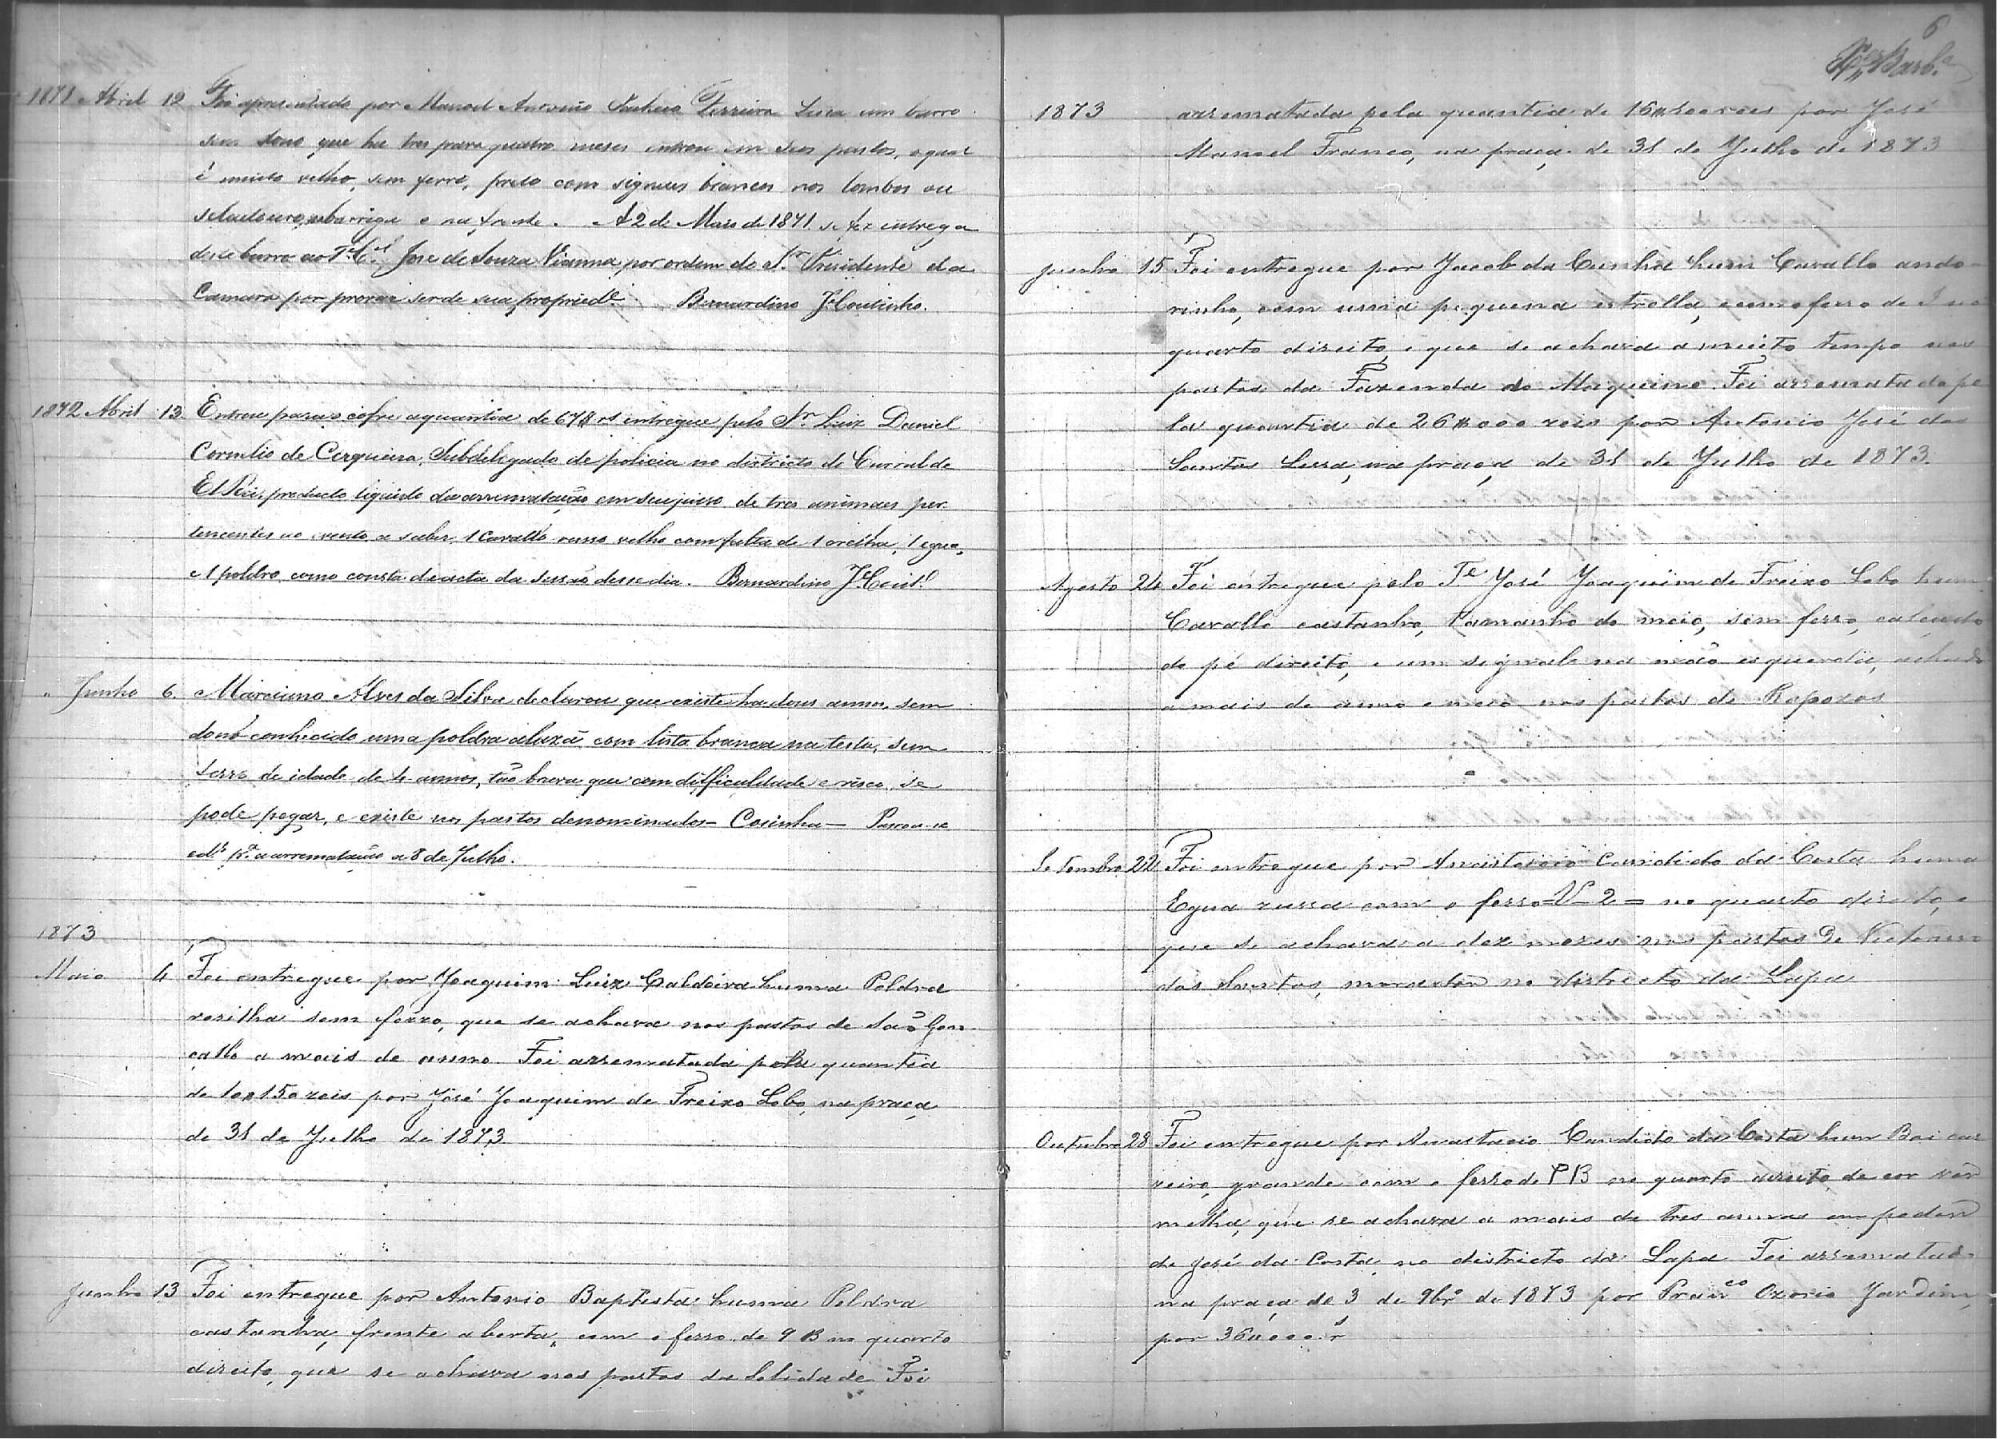 1871 Abril 12 Foi apresentado por Manoel Antonio Ferreira um burro
sem dono que ha tres para quatro meses entrou em seus pastos, o qual
é muito velho, sem ferro, preto com signaes brancos nos lombos ou
selladouro, barriga e na frente. A 2 de Maio de 1871 se fez entrega
desse burro ao Te. Cel. José de Souza Vianna por ordem do Snr. Presidente da
Camara por provar ser de sua propriede. Bernardino J. Coutinho.
1872 Abril 13 Entrou para o cofre a quantia de 67$ rs entregue pelo Snr. Luiz Daniel
Cornelio de Cerqueira, Subdelegado de policia no districto de Curral de
El Rei, producto liquido da arrematação em seu juiso de tres animaes per
tencentes ao vento, a saber, 1 cavallo russo velho com falta de 1 orelha, 1 egua,
e 1 poldro, como consta da acta da sessão desse dia. Bernardino J. Cout.
" Junho 6 Marciano Alves da Silva declarou que existe ha dous annos, sem
dono conhecido uma poldra alazã com lista branca na testa, sem
ferro de idade de 4 annos, tão brava que com difficuldade e risco, se
pode pegar, e existe nos pastos denominados - Cosinha - Passou-se
edl. pa. a arrematação a 8 de Julho.
1873
Maio 4 Foi entregue por Joaquim Luiz Caldeira huma Poldra
rosilha sem ferro, que se achava nos pastos de São Gon
çallo a mais de anno. Foi arrematada pella quantia
de 10$150 reis por José Joaquim de Freixo Lobo, na praça
de 31 de Julho de 1873.
Junho 13 Foi entregue por Antonio Baptista huma Poldra
castanha, frente aberta, com o ferro de 9 B no quarto
direito, que se achava nos pastos da Solidade Foi
6
1873 arrematada pela quantia de 16$500 reis por José
Manoel Franco, na praça de 31 de Julho de 1873
Junho 15 Foi entregue por Jacob da Cunha hum Cavallo ando
rinho, com uma pequena estrella, e com o ferro de J no
quarto direito, e que se achava a muito tempo nos
pastos da Fazenda do Maquine. Foi arrematado pe
la quantia de 26$000 reis por Antonio José dos
Santos Lessa, na praça de 31 de Julho de 1873.
Agosto 24 Foi entregue pelo Te José Joaquim de Freixo Lobo hum
Cavallo castanho, tamanho do meio, sem ferro, calçado
do pé direito, e um signal na mão esquerda, achado
a mais de anno e meio nos pastos de Rapozos
Setembro 22 Foi entregue por Anastacio Candido da Costa huma
Egua russa com o ferro = V - 2 = no quarto direito, e
que se achava a dez mezes nos pastos de
dos Santos, morador no districto da Lapa
Outubro 28 Foi entregue por Anastacio Candido da Costa hum Boi car
reiro, grande com o ferro de PB no quarto direito de cor ver
melha, que se achava a mais de tres annos em poder
de José da Costa, no districto da Lapa Foi arrematado
na praça de 3 de 9bro de 1873 por Franco Ozorio Jardim,
por 36$000 r